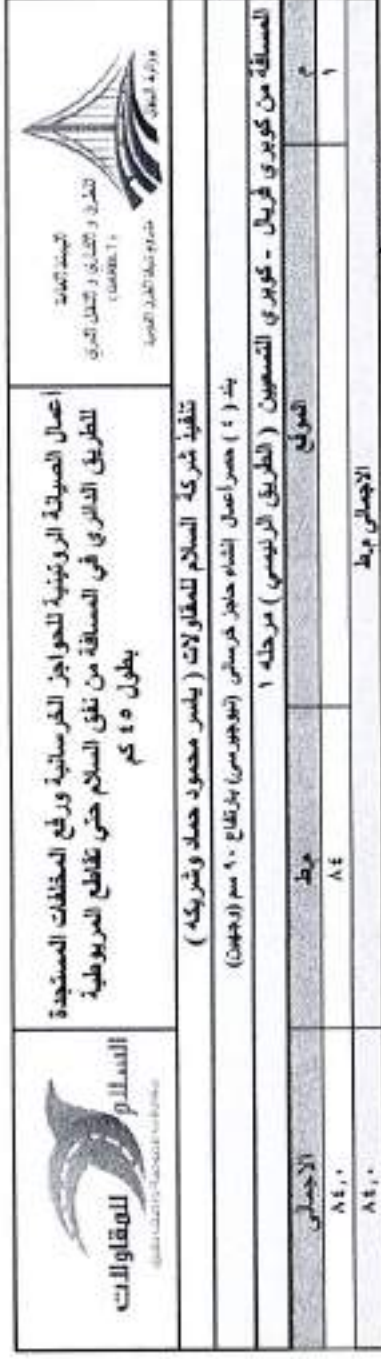 وزارة النقل
الهيئة العامة
للطرق و الكباري و النقل البري
( GARBLT )
أعمال الصيانة الروتينية للحواجز الخرسانية ورفع المخلفات المستجدة
للطريق الدائري في المسافة من نفق السلام حتى تقاطع المريوطية
بطول ٤٥ كم
السلام
للمقاولات
تنفيذ شركة السلام للمقاولات ( ياسر محمود حماد وشريكه )
بند ( ٤ ) حصر أعمال إنشاء حاجز خرساني (نيوجيرسي) بارتفاع ٩٠ سم (وجهين)
المسافة من كوبري فريال - كوبري التسعين ( الطريق الرئيسي ) مرحله ١
م الموقع م.ط الاجمالي
١ ٨٤ ٨٤,٠
الاجمالي م.ط ٨٤,٠